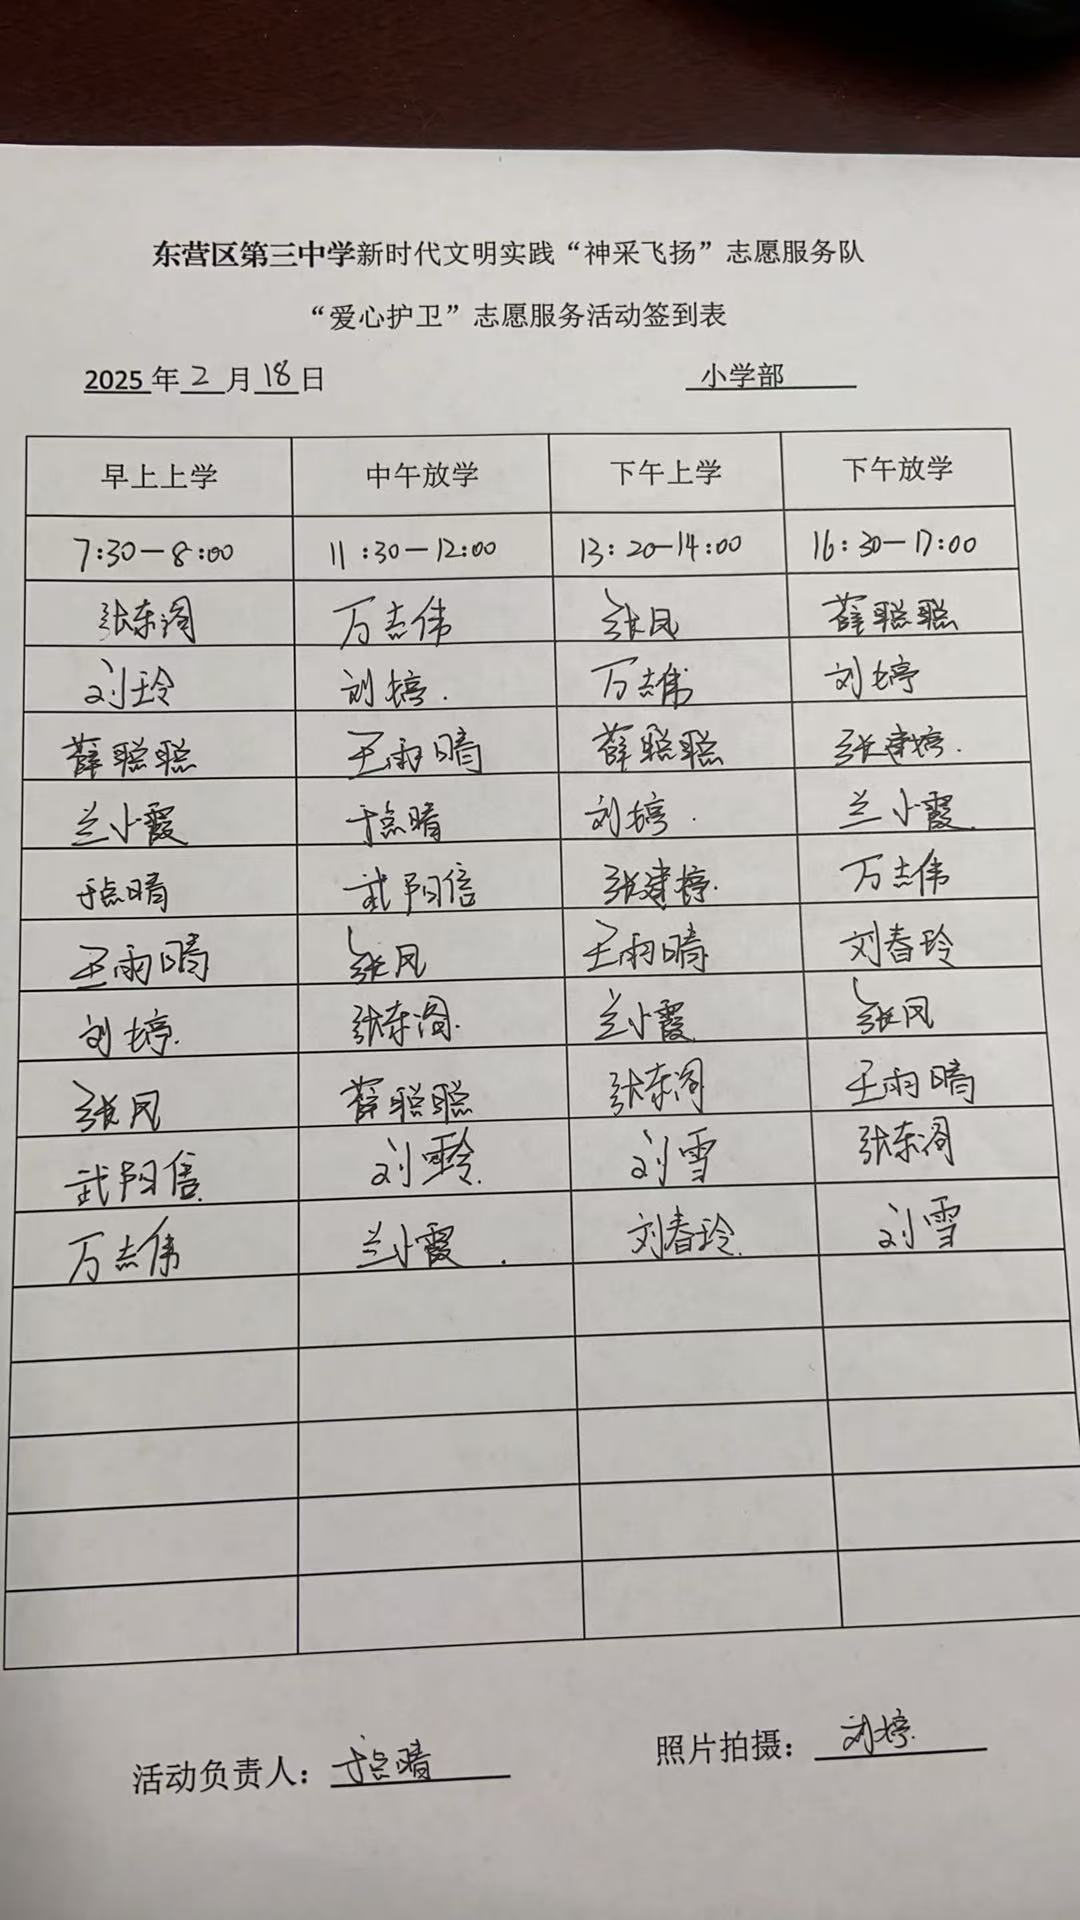 东营区第三中学新时代文明实践“神采飞扬”志愿服务队
“爱心护卫”志愿服务活动签到表
2025年2月18日 小学部
早上上学 中午放学 下午上学 下午放学
7:30—8:00 11:30—12:00 13:20—14:00 16:30—17:00
张东阁 万志伟 张凤 薛聪聪
刘玲 刘婷. 万志伟 刘婷
薛聪聪 王雨晴 薛聪聪 张建婷.
兰小霞 于点晴 刘婷. 兰小霞.
于点晴 武阳信 张建婷. 万志伟
王雨晴 张凤 王雨晴 刘春玲
刘婷. 张东阁. 兰小霞. 张凤
张凤 薛聪聪 张东阁 王雨晴
武阳信. 刘玲. 刘雪 张东阁
万志伟 兰小霞. 刘春玲. 刘雪
活动负责人：于点晴 照片拍摄：刘婷.